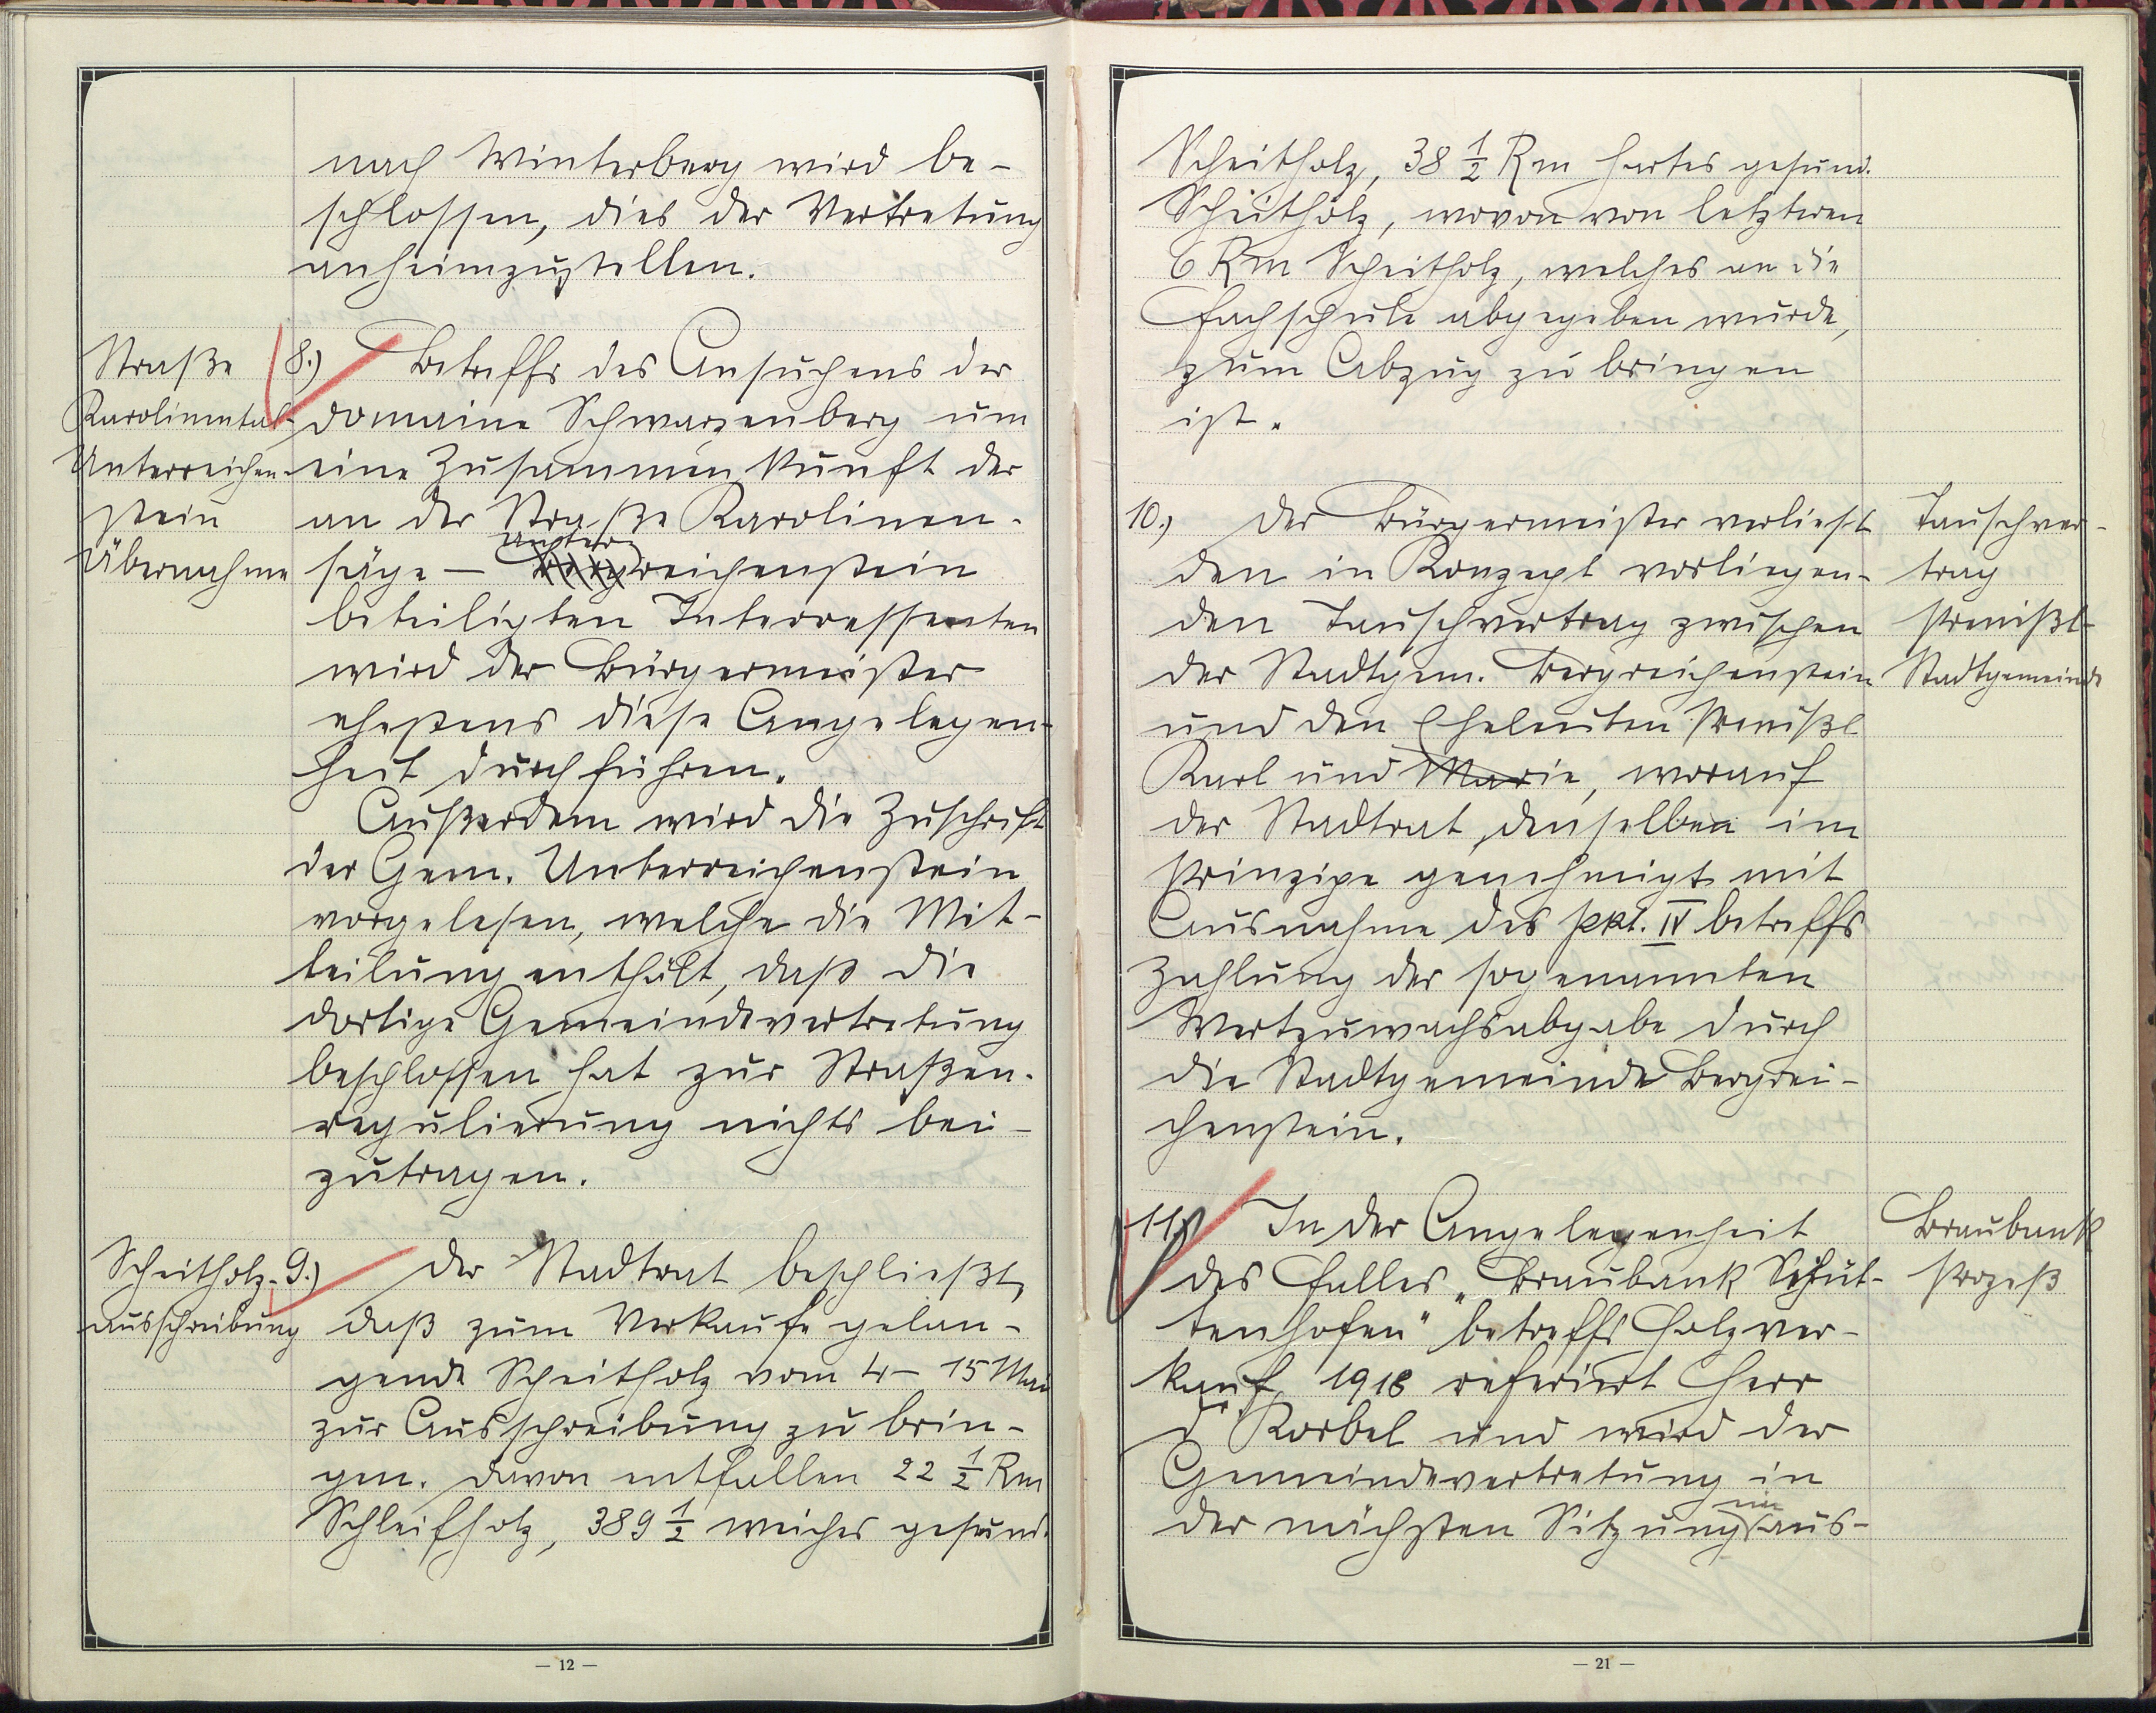 nach Winterberg wird be-
schlossen, dies der Vertretung
anheimzustellen.
Straße
Karolinental-
Unterreichen-
stein
Übernahme
8.) Betreffs des Ansuchens der
Domaine Schwarzenberg um
eine Zusammenkunft der
an der Straße Karolinen-
säge - Unterreichenstein
beteiligten Interressenten
wird der Bürgermeister
ehestens diese Angelegen-
heit durchführen.
Außerdem wird die Zuschrift
der Gem. Unterreichenstein
vorgelesen, welche die Mit-
teilung enthält, daß die
dortige Gemeindevertretung
beschlossen hat zur Straßen-
regulierung nichts bei-
zutragen.
Scheitholz-
ausschreibung
9.) Der Stadtrat beschließt,
daß zum Verkaufe gelan-
gende Scheitholz vom 4 - 15 Mai
zur Ausschreibung zu brin-
gen. Davon entfallen 22 1/2 Rm
Schleifholz, 389 1/2 weiches gesund.
- 12 -
Scheitholz, 38 1/2 Rm hartes gesund.
Scheitholz, wovon von letzteren
6 Rm Scheitholz, welches an die
Fachschule abgegeben wurde,
zum Abzug zu bringen
ist.
10.) Der Bürgermeister verliest
den in Konzept vorliegen-
den Tauschvertrag zwischen
der Stadtgem. Bergreichenstein
und den Eheleuten Prenißl
Karl und Marie, worauf
der Stadtrat denselben im
Prinzipe genehmigt mit
Ausnahme des pkt. IV betreffs
Zahlung der sogenannten
Wertzuwachsabgabe durch
die Stadtgemeinde Bergrei-
chenstein.
Tauschver-
trag
Prenißl-
Stadtgemeinde
11.) In der Angelegenheit
des Falles "Braubank Schüt-
tenhofen" betreffs Holzver-
kauf, 1918 referiert Herr
Dr. Korbel und wird der
Gemeindevertretung in
der nächsten Sitzung ein aus-
Braubank
Prozeß
- 21 -